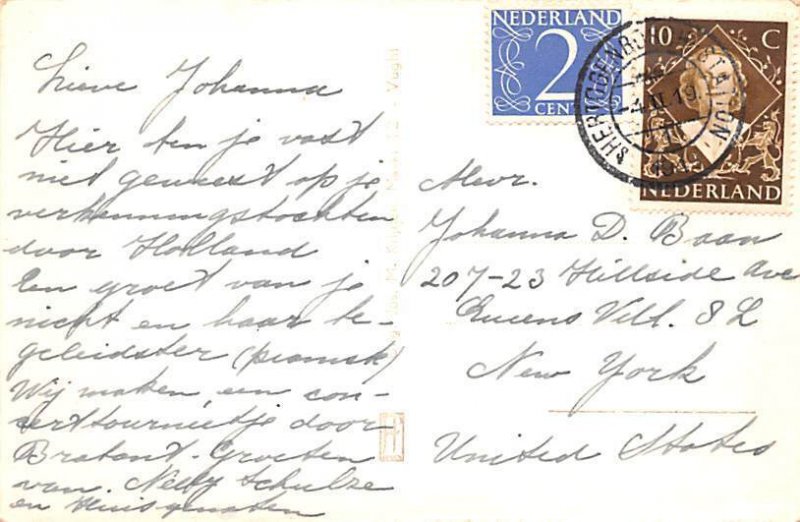 Lieve Johanna
Hier ben je vast
niet geweest op je
verkenningstochten
door Holland
Een groet van je
nicht en haar be-
geleidster (pianiste)
Wij maken een con-
certtournéetje door
Brabant. Groeten
van Nelly Schulze
en Huisgenoten
NEDERLAND
2
CENT
10 C
NEDERLAND
STATION
Mevr.
Johanna D. Baan
207-23 Hillside Ave
Queens Vill. 8 L
New York
United States
Vught